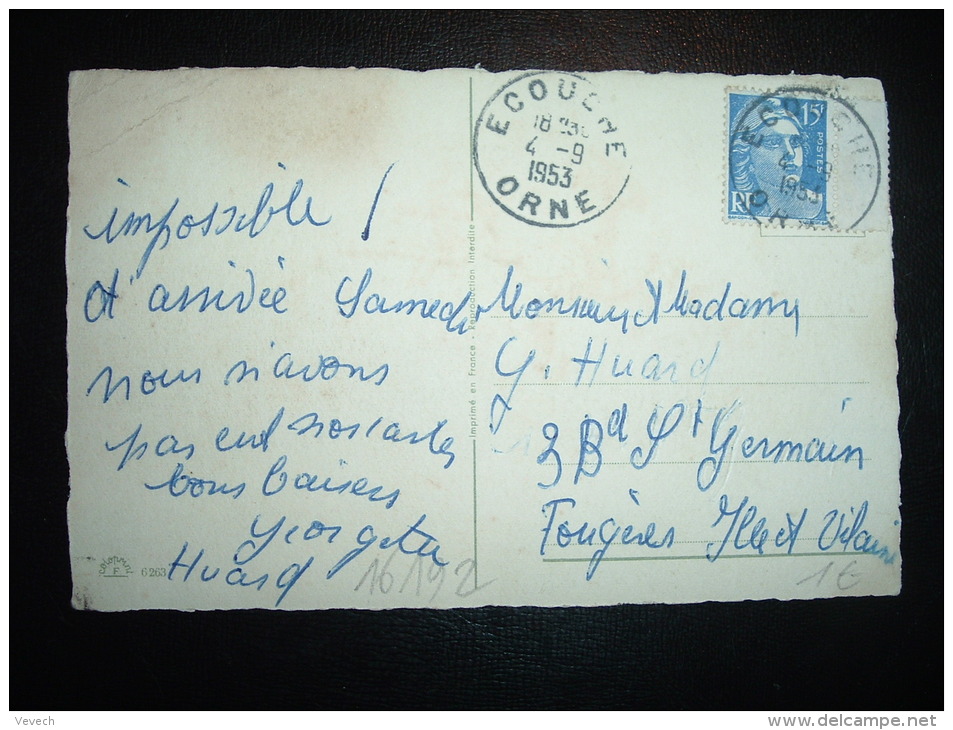 impossible !
d'arrivée Samedi
nous n'avons
pas eut nos cartes
bons baisers
Georgette
Huard
16192
COLORPRINT
F
6263
Imprimé en France - Reproduction Interdite
ECOUCHE
18 H 30
4 - 9
1953
ORNE
15F
POSTES
RF
ECOUCHE
4 - 9
1953
ORNE
Monsieur & Madame
G. Huard
3 Bd St Germain
Fougères Ille et Vilaine
1€
Vevech
www.delcampe.net